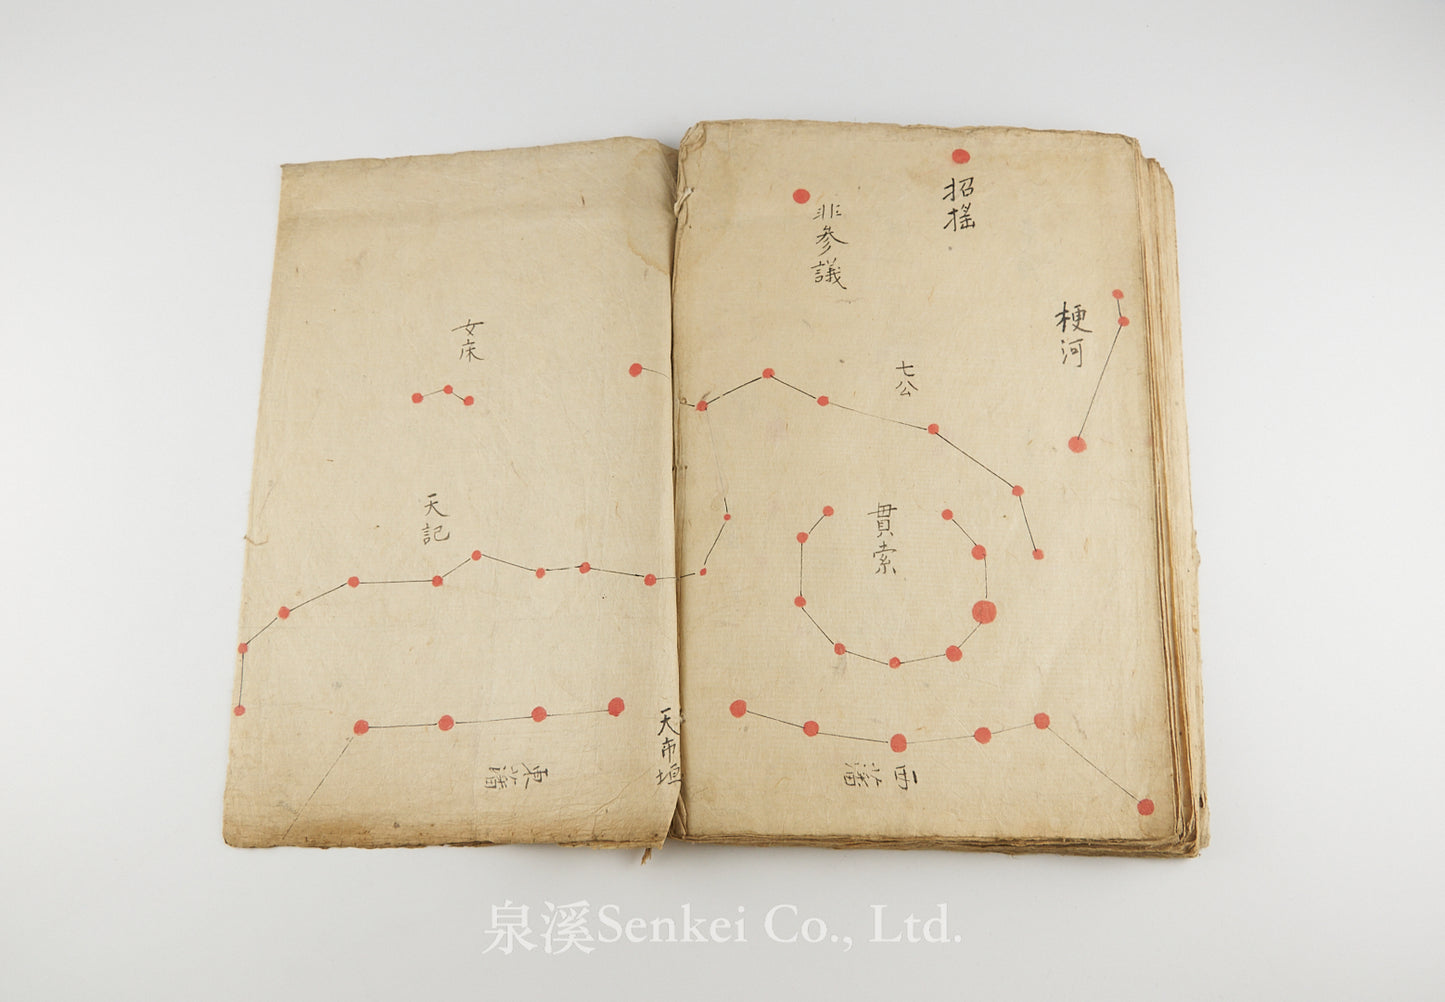 招摇
非參議
梗河
七公
貫索
西藩
天市垣
女床
天記
東藩
泉溪Senkei Co., Ltd.